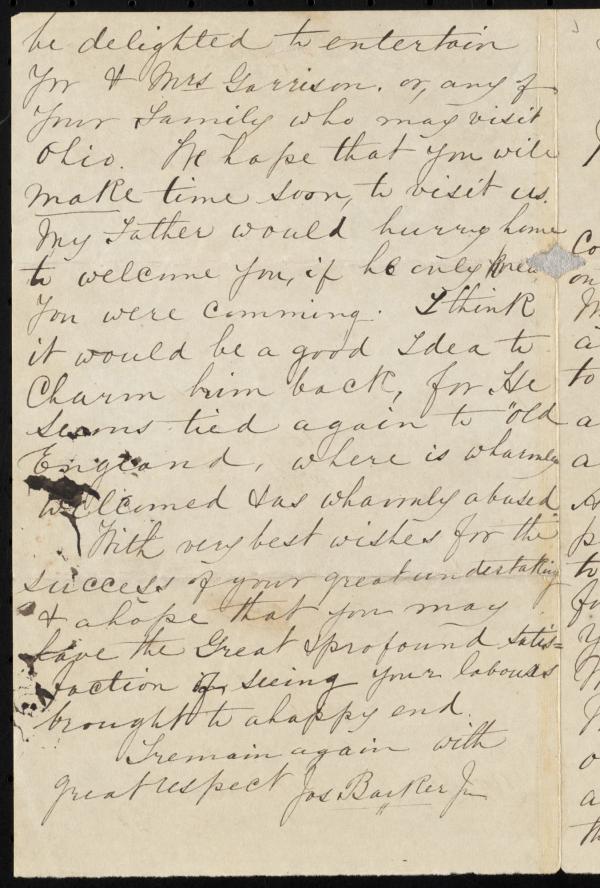 be delighted to entertain
Yr & Mrs Garrison. or, any of
Your Family who may visit
Ohio. We hope that you will
make time soon, to visit us.
My Father would hurry home
to welcome you, if he only knew
you were comming. I think
it would be a good Idea to
Charm him back, for He
seems tied again to "old
England, where is wharmly
wellcomed & as wharmly abused.
With very best wishes for the
success of your great undertaking
& a hope that you may
have the Great & profound satis=
faction of seeing your labours
brought to a happy end.
I remain again with
great respect Jos Barker Jr